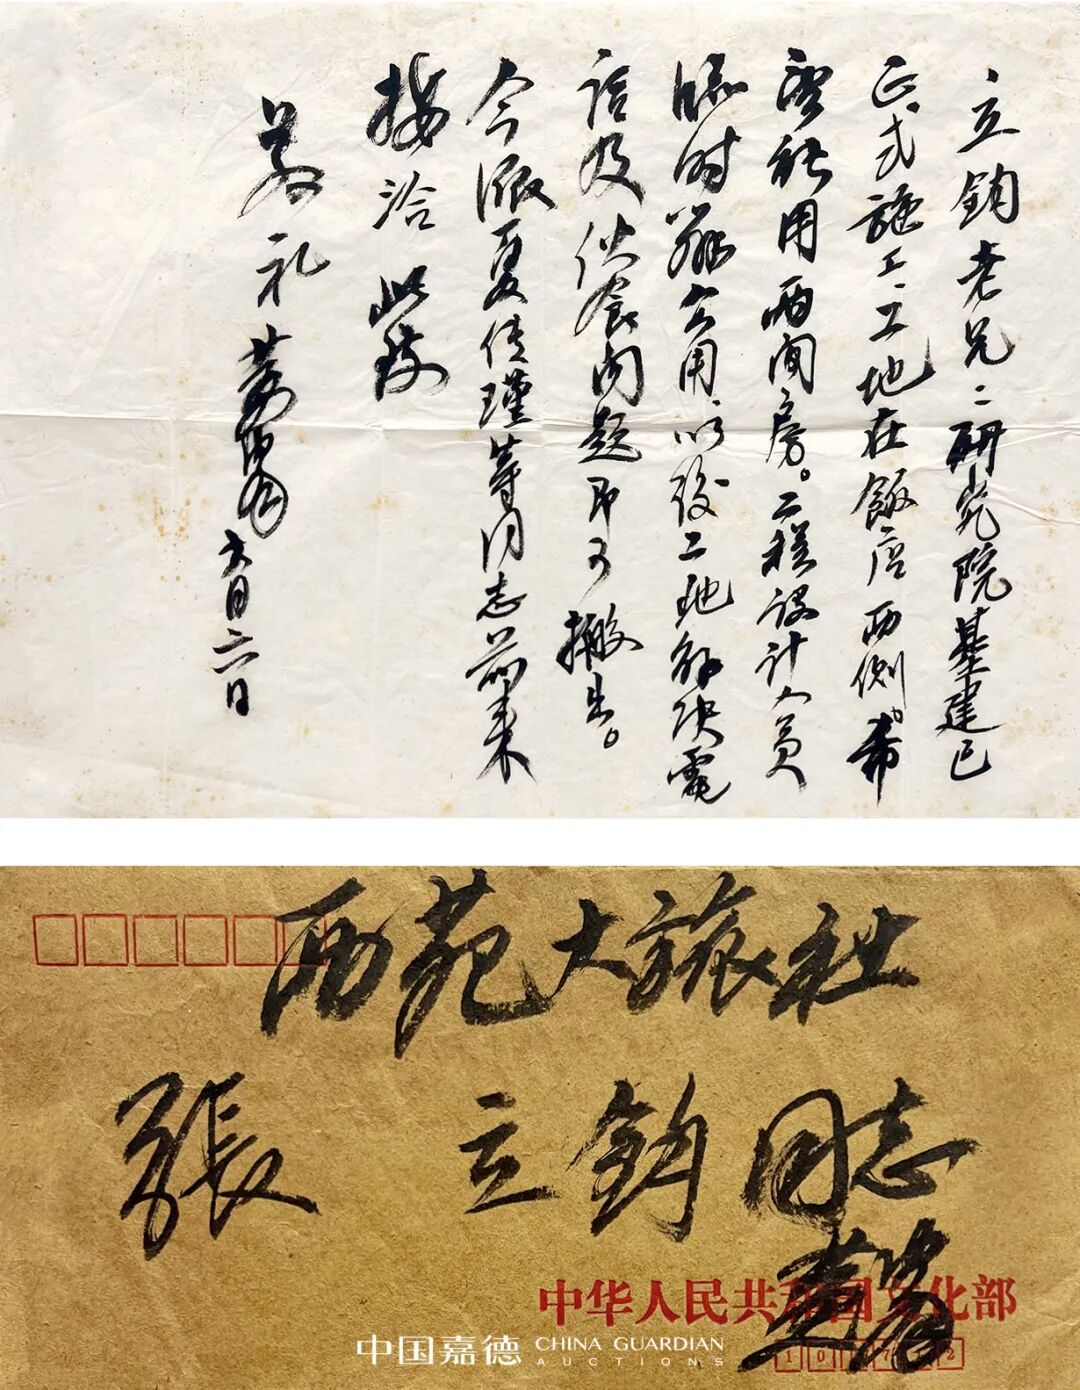 立钧老兄：研究院基建已
正式施工，工地在飯店西侧。希
望社用两间房。工程设计人员
临时办公用，以後工地解决電
话及伙食问题即可搬出。
今派夏传瑾等同志前来
接洽 此致
敬礼 黄苗子
六月六日
西苑大旅社
張 立鈞同志
中华人民共和国文化部
中国嘉德 CHINA GUARDIAN
AUCTIONS